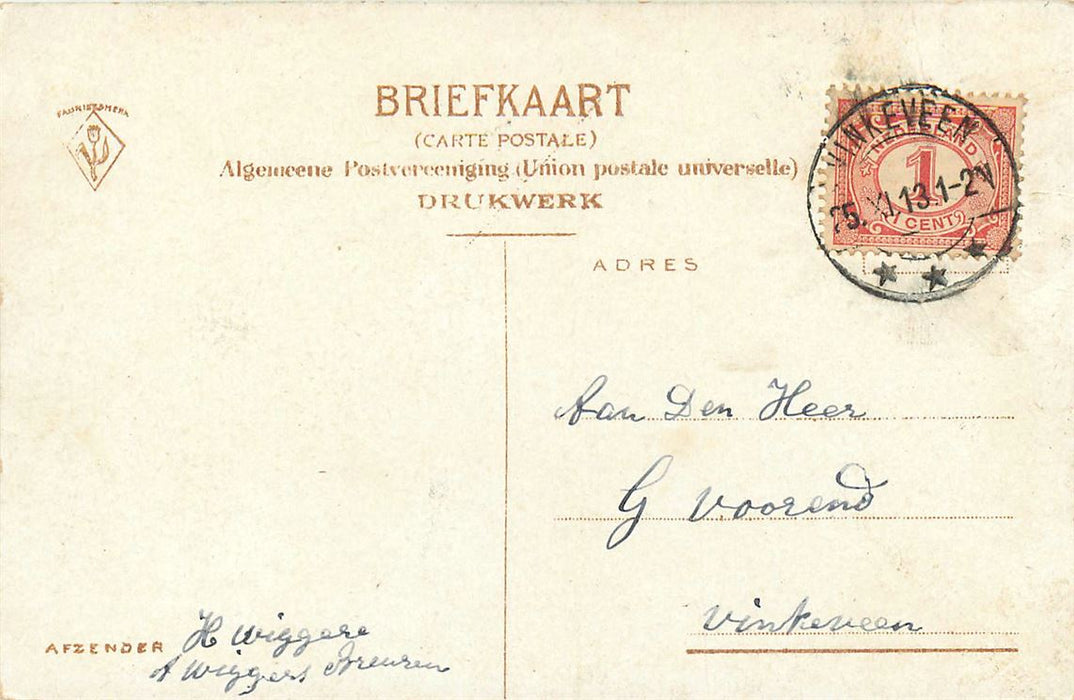 FABRIEKSMERK
BRIEFKAART
(CARTE POSTALE)
Algemeene Postvereeniging (Union postale universelle)
DRUKWERK
VINKEVEEN
NEDERLAND
1
25. XI. 13. 1-2 N
1 CENT
ADRES
Aan Den Heer
G Voorend
Vinkeveen
AFZENDER H Wiggers
A Wiggers